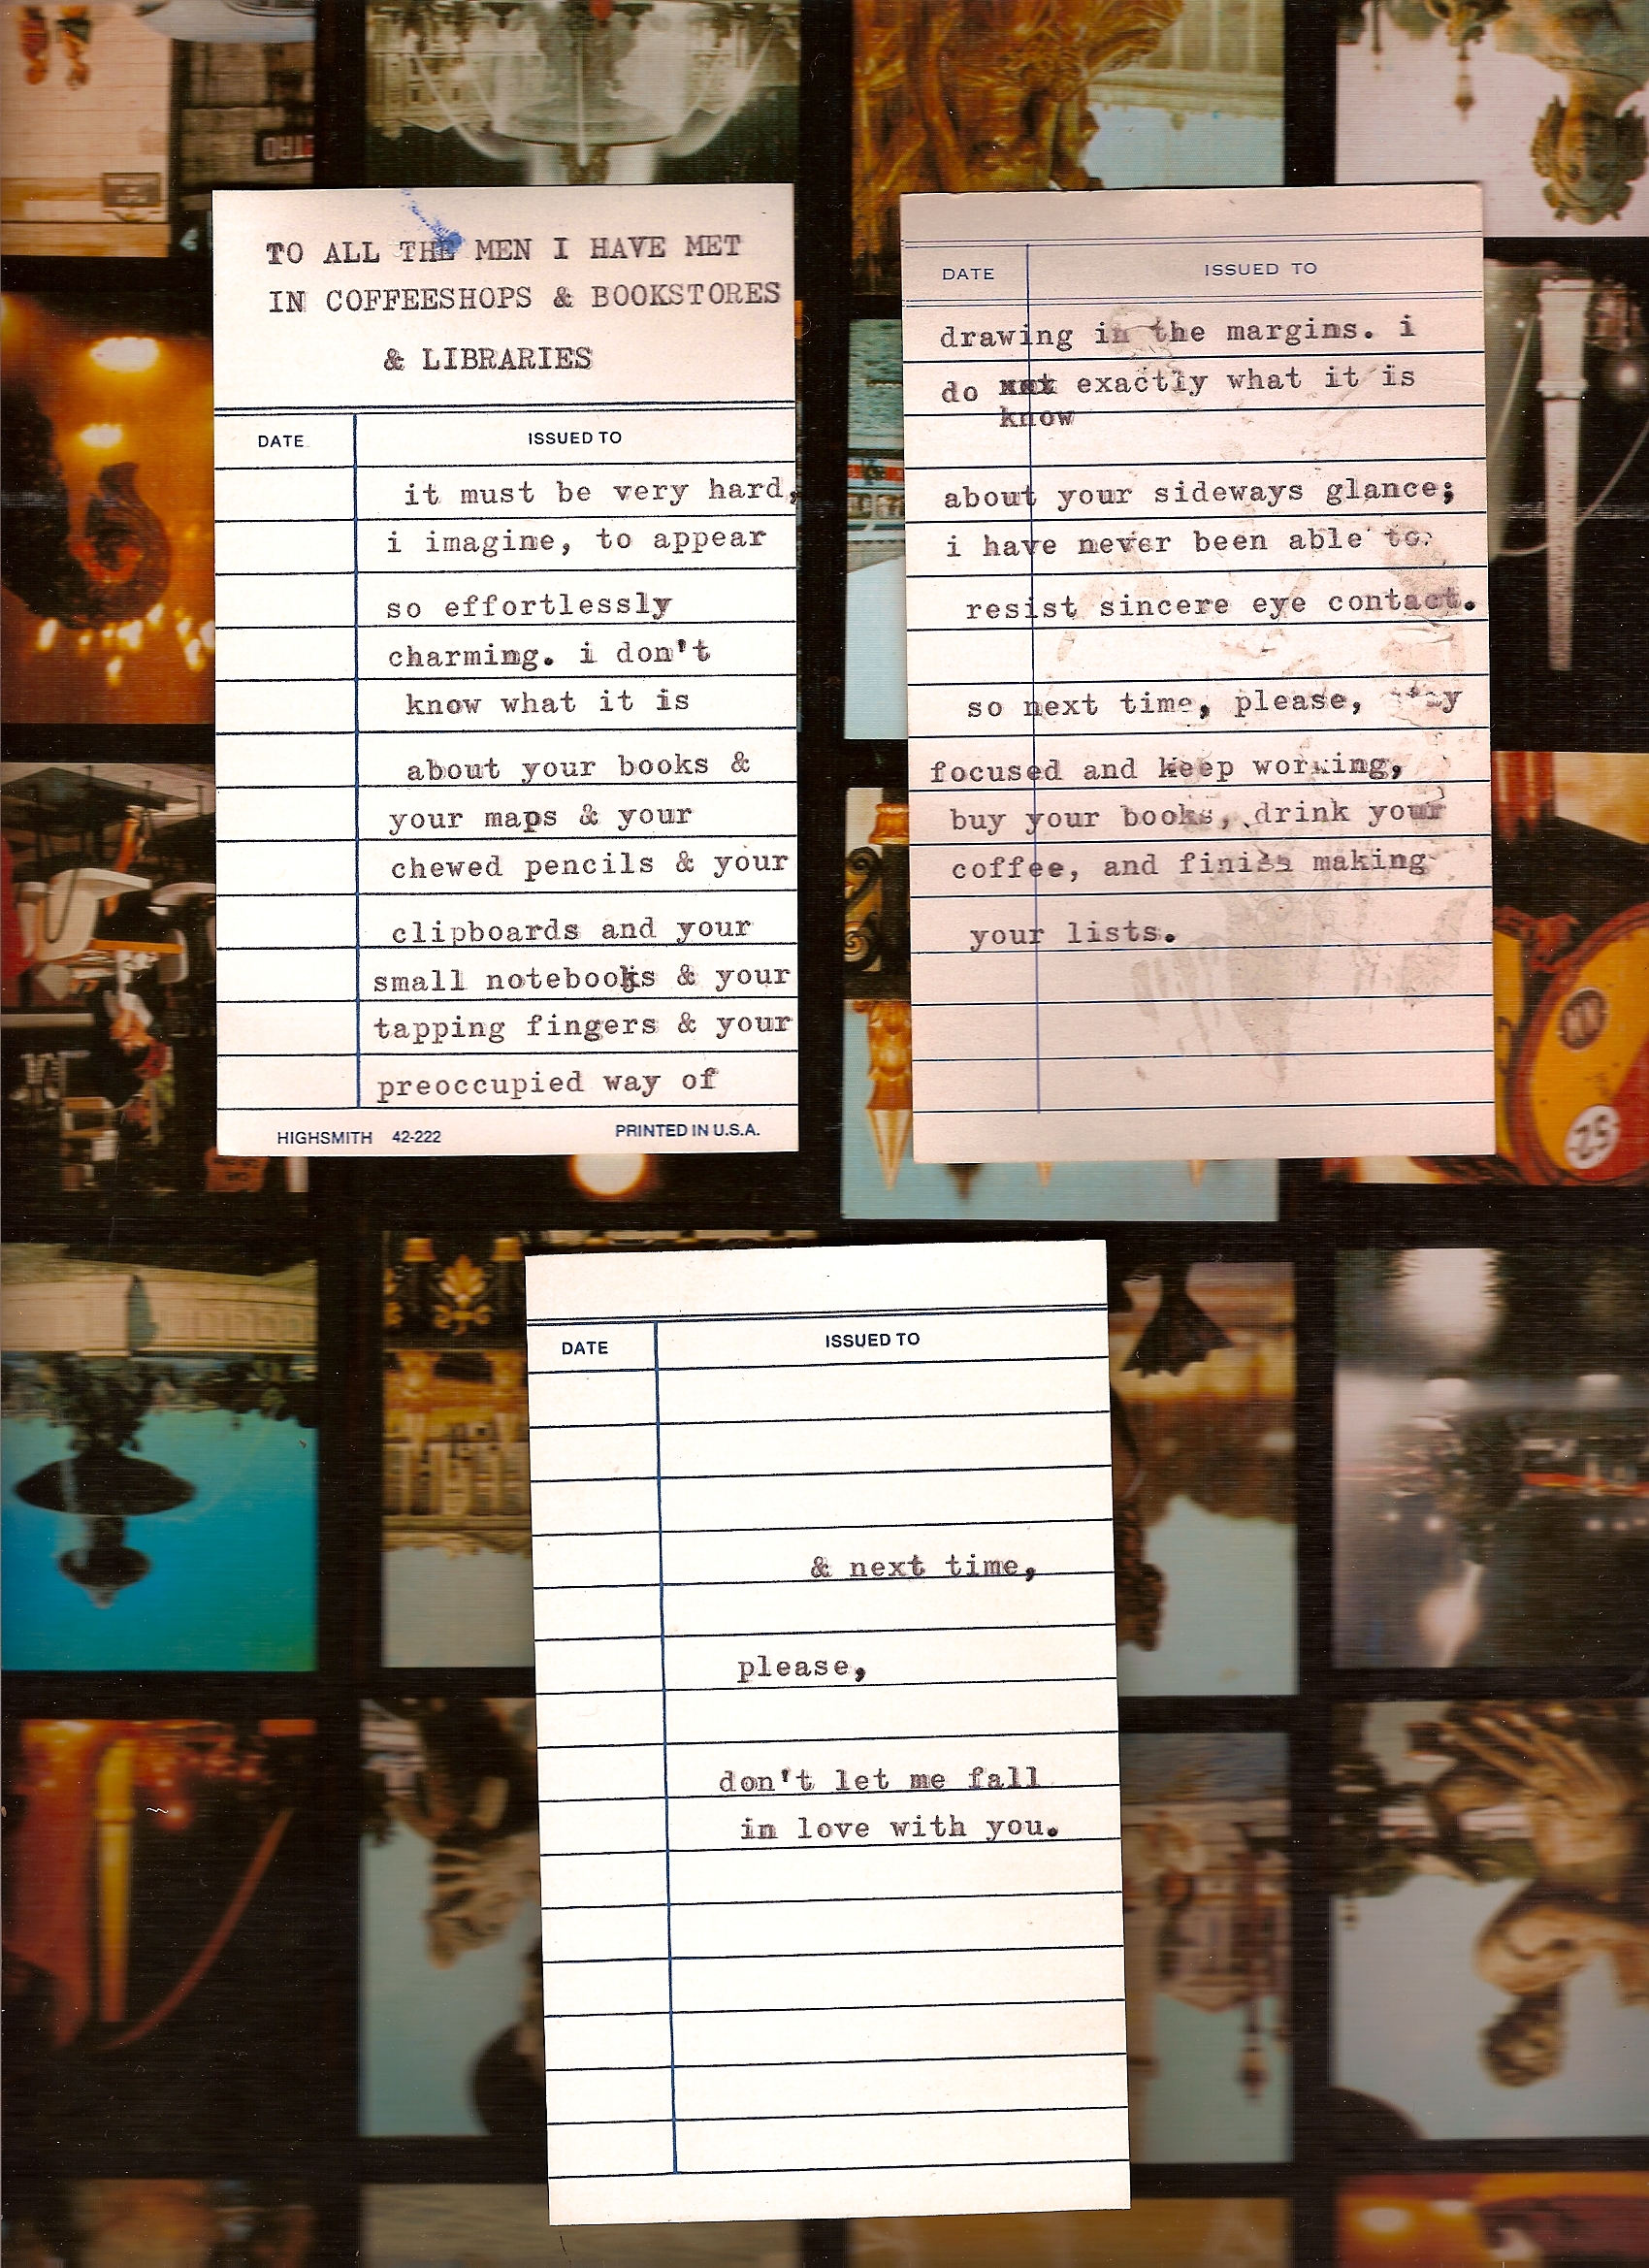 TO ALL THE MEN I HAVE MET
IN COFFEESHOPS & BOOKSTORES
& LIBRARIES
DATE ISSUED TO
it must be very hard,
i imagine, to appear
so effortlessly
charming. i don't
know what it is
about your books &
your maps & your
chewed pencils & your
clipboards and your
small notebooks & your
tapping fingers & your
preoccupied way of
HIGHSMITH 42-222 PRINTED IN U.S.A.
DATE ISSUED TO
drawing in the margins. i
do exactly what it is
know
about your sideways glance;
i have never been able to
resist sincere eye contact.
so next time, please,
focused and keep working,
buy your books, drink your
coffee, and finish making
your lists.
DATE ISSUED TO
& next time,
please,
don't let me fall
in love with you.